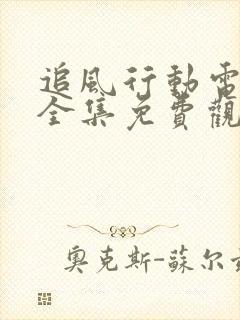 追風行動電
全集免費觀
奧克斯-蘇尔